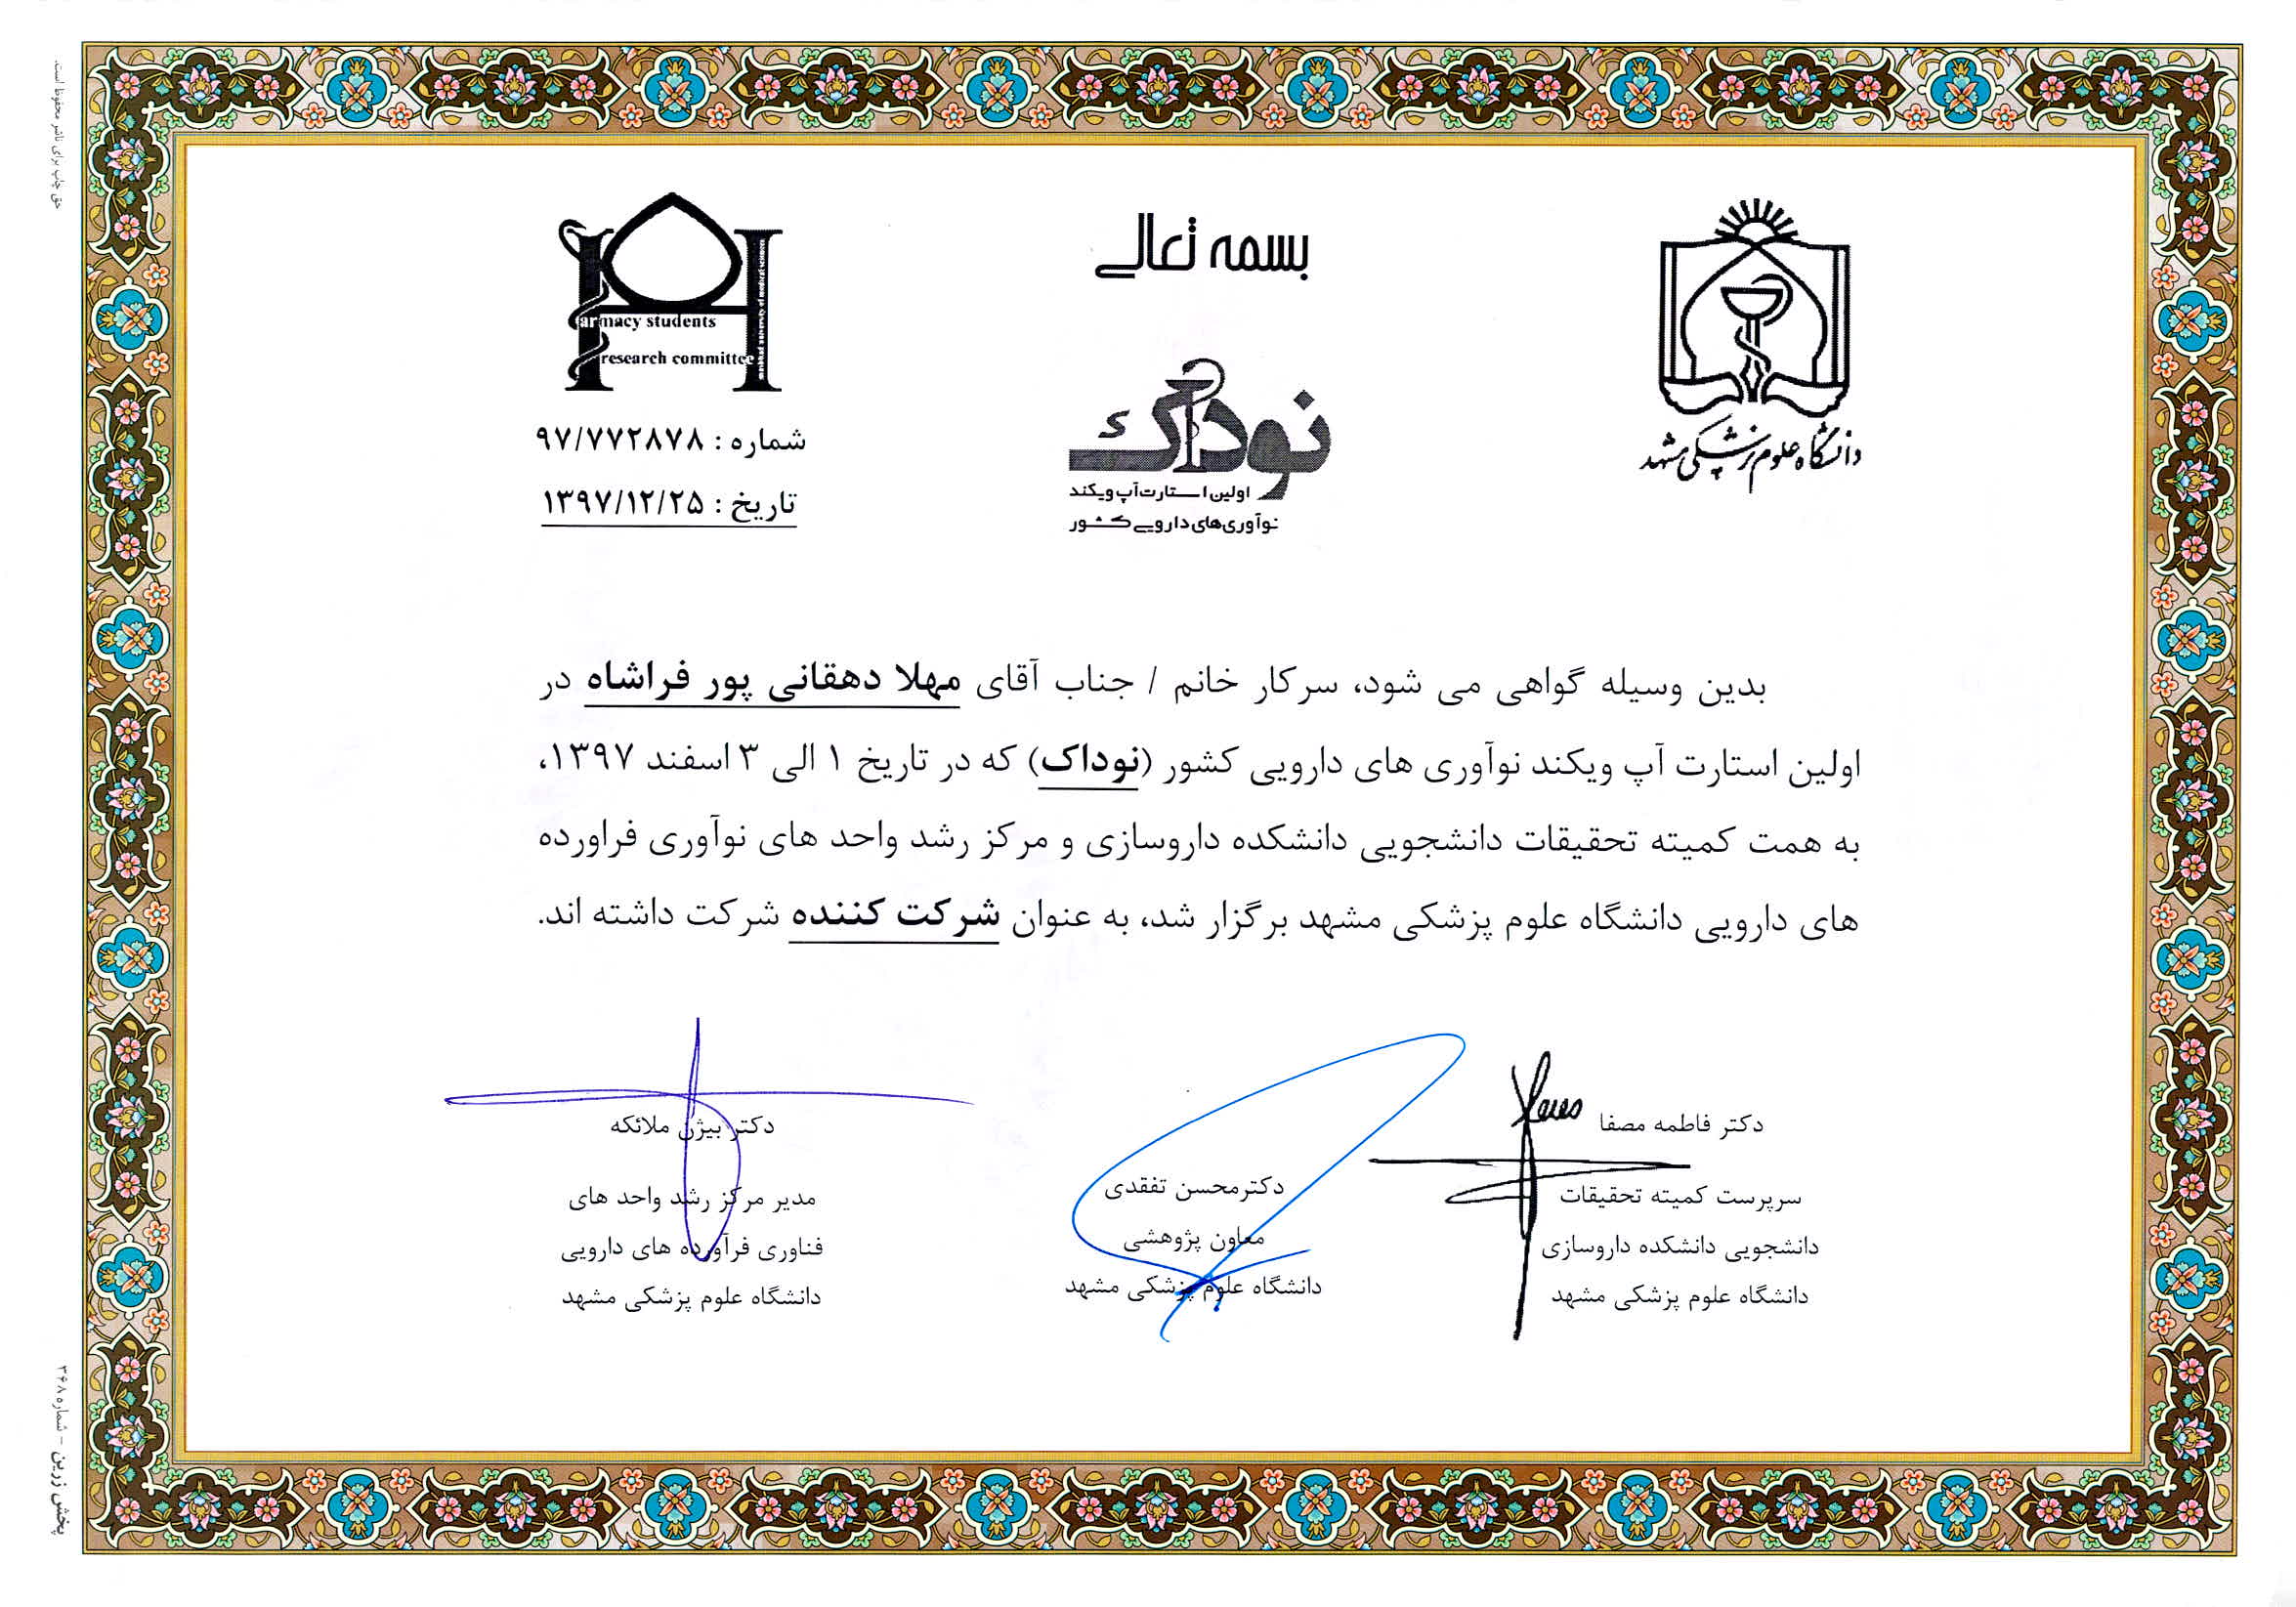 بسمه تعالی
دانشگاه علوم پزشکی مشهد
نوداک
اولین استارت‌آپ ویکند
نوآوری‌های دارویی کشور
armacy students
research committee
mashhad university of medical sciences
شماره : ۹۷/۷۷۲۸۷۸
تاریخ : ۱۳۹۷/۱۲/۲۵
بدین وسیله گواهی می شود، سرکار خانم / جناب آقای مهلا دهقانی پور فراشاه در
اولین استارت آپ ویکند نوآوری های دارویی کشور (نوداک) که در تاریخ ۱ الی ۳ اسفند ۱۳۹۷،
به همت کمیته تحقیقات دانشجویی دانشکده داروسازی و مرکز رشد واحد های نوآوری فراورده
های دارویی دانشگاه علوم پزشکی مشهد برگزار شد، به عنوان شرکت کننده شرکت داشته اند.
دکتر فاطمه مصفا
سرپرست کمیته تحقیقات
دانشجویی دانشکده داروسازی
دانشگاه علوم پزشکی مشهد
دکترمحسن تفقدی
معاون پژوهشی
دانشگاه علوم پزشکی مشهد
دکتر بیژن ملائکه
مدیر مرکز رشد واحد های
فناوری فرآورده های دارویی
دانشگاه علوم پزشکی مشهد
حق چاپ برای ناشر محفوظ است.
پخش زرین – شماره ۳۶۸